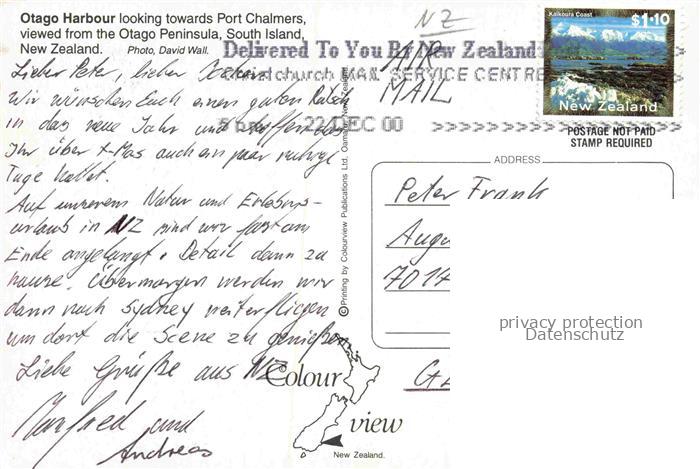 Otago Harbour looking towards Port Chalmers,
viewed from the Otago Peninsula, South Island,
New Zealand. Photo, David Wall.
NZ
Delivered To You By New Zealand
Christchurch MAIL SERVICE CENTRE
22 DEC 00
AIR
MAIL
Kaikoura Coast
$1.10
New Zealand
POSTAGE NOT PAID
STAMP REQUIRED
Lieber Peter, lieber
Wir wünschen Euch einen guten Rutsch
in das neue Jahr und hoffen das
Ihr über X-Mas auch ein paar ruhige
Tage hattet.
Auf unserem Natur und Erlebnis-
urlaub in NZ sind wir fast am
Ende angelangt. Detail dann zu
hause. Übermorgen werden wir
dann nach Sydney weiterfliegen
um dort die Scene zu genießen
Liebe Grüße aus NZ
Manfred und
Andreas
©Printing by Colourview Publications Ltd. Oamaru, New Zealand
ADDRESS
Peter Frank
Augu
7017
privacy protection
Datenschutz
Colour
view
New Zealand.